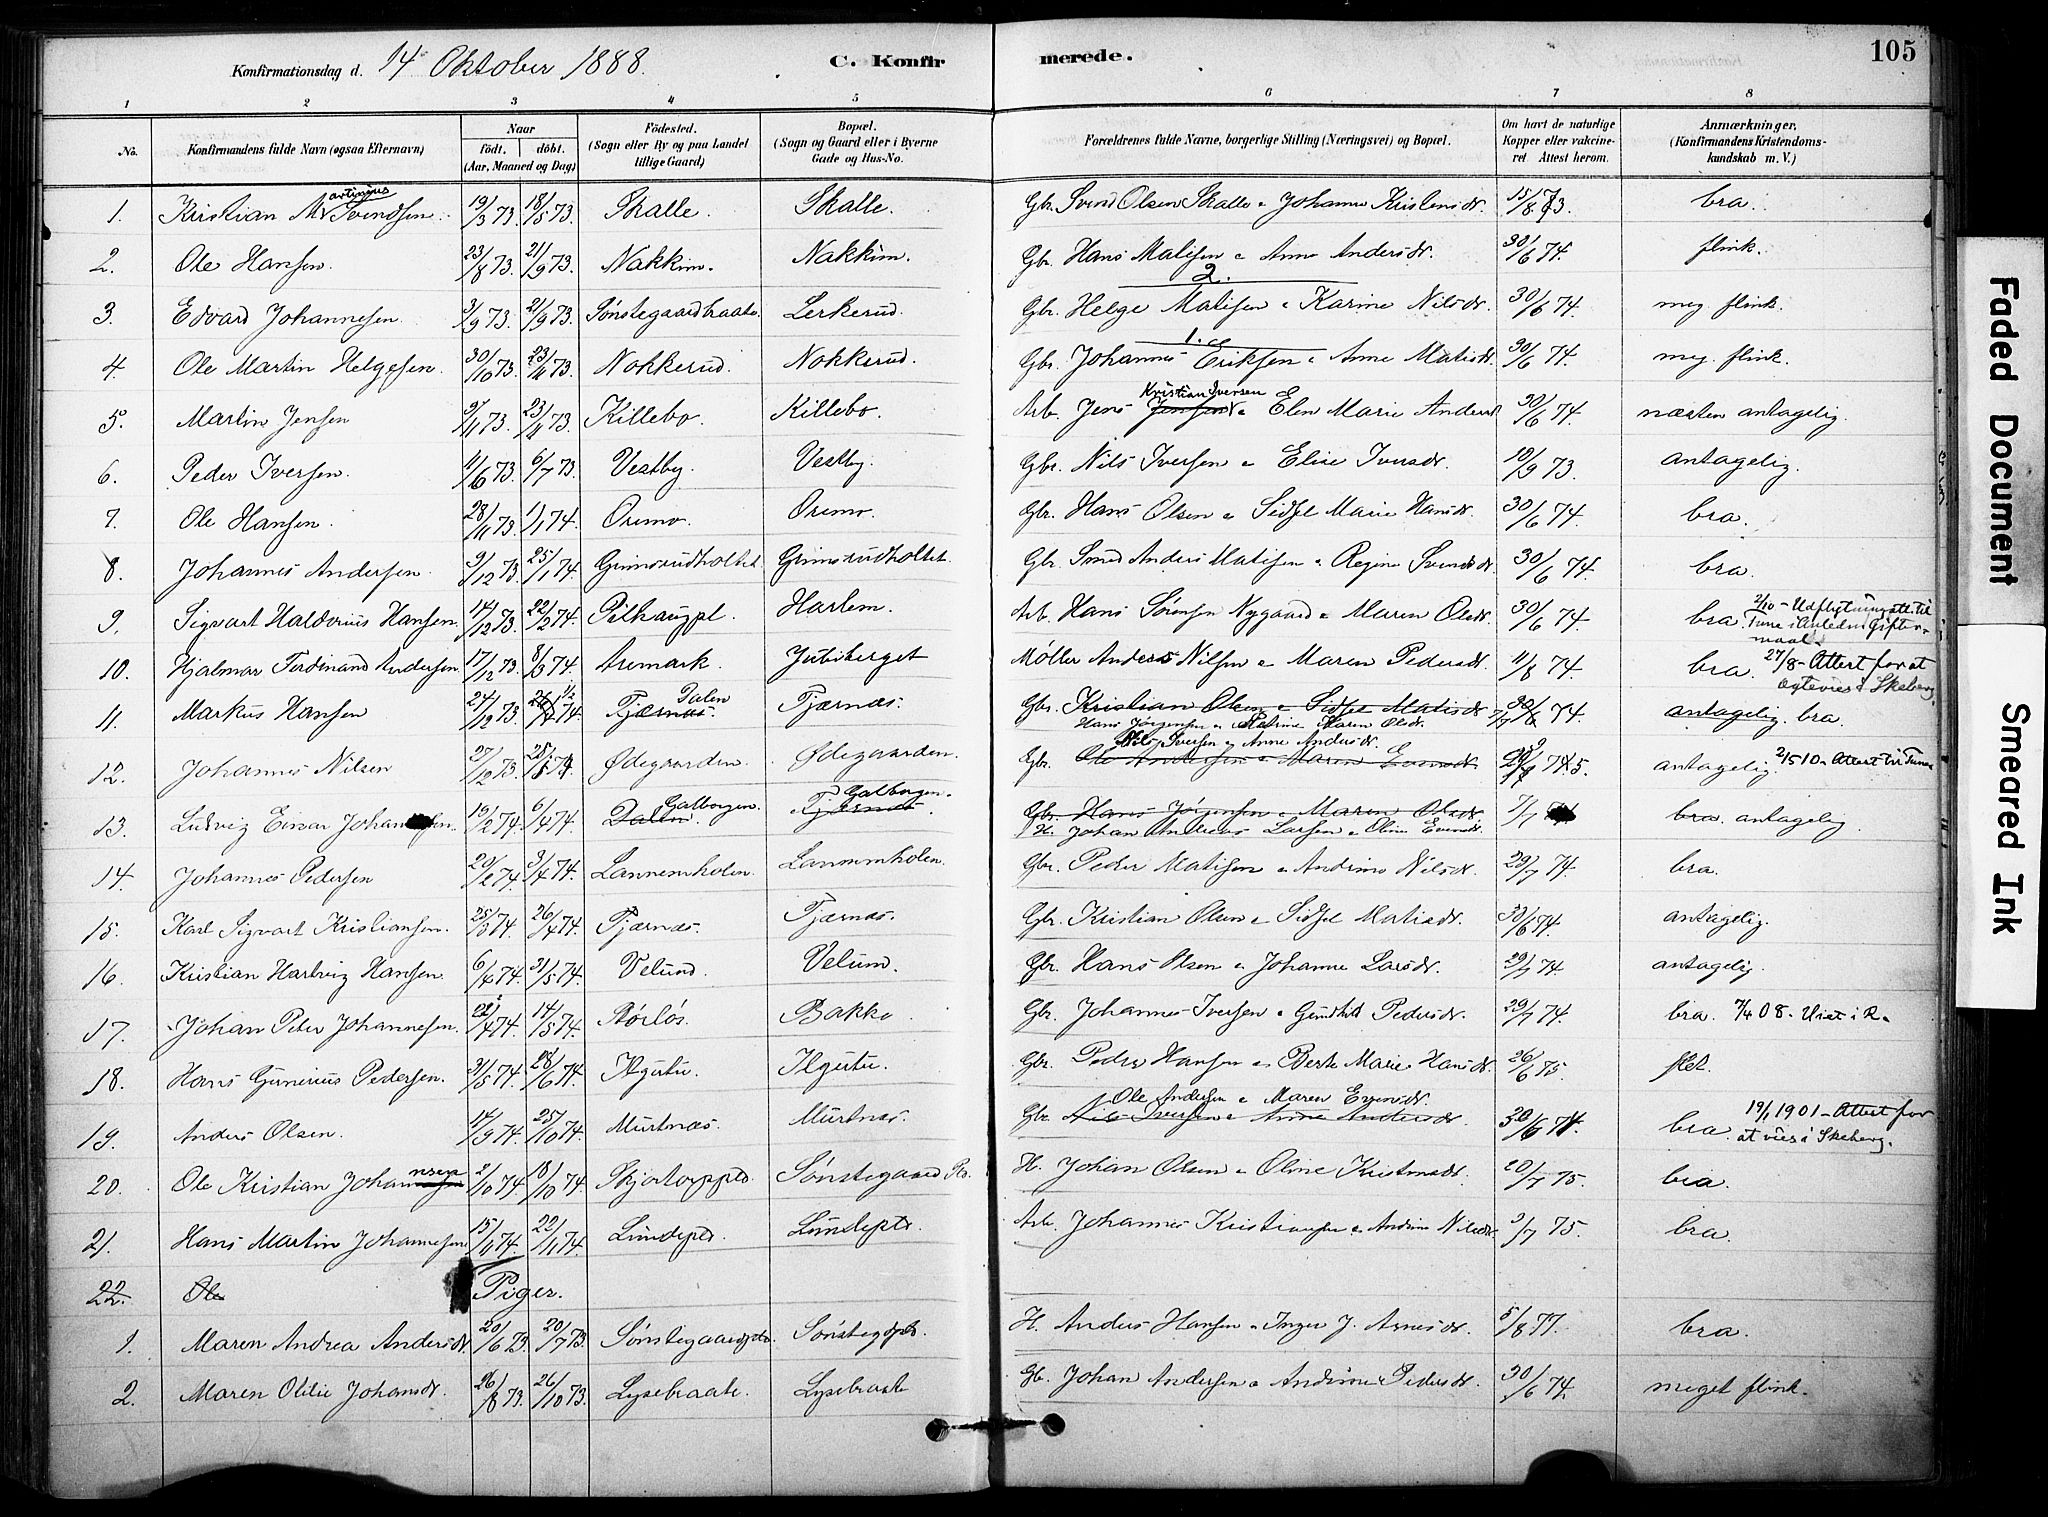 Konfirmationsdag d. 14 Oktober 1888. C. Konfirmerede. 105
1 2 3 4 5 6 7 8
No. Konfirmandens fulde Navn (ogsaa Efternavn) Naar födt. döbt. (Aar, Maaned og Dag) Födested. (Sogn eller By og paa Landet tillige Gaard) Bopæl. (Sogn og Gaard eller i Byerne Gade og Hus-No. Forældrenes fulde Navne, borgerlige Stilling (Næringsvei) og Bopæl. Om havt de naturlige Kopper eller vakcineret Attest herom. Anmærkninger. (Konfirmandens Kristendomskundskab m. V.)
1. Kristian Martinius Svendsen. 19/3 73 18/5 73. Skalle. Skalle. Gbr. Svend Olsen Skalle o Johanne Kristensdr. 15/8 73. bra.
2. Ole Hansen. 23/8 73. 21/9 73. Nakkim. Nakkim. Gbr. Hans Matisen o Anne Andersdr. 30/6 74. flink.
2.
3. Edvard Johannesen. 3/9 73. 21/9 73. Sønstegaardbraate. Lerkerud. Gbr. Helge Matisen o Karine Nilsdr. 30/6 74. meg. flink.
1.
4. Ole Martin Helgesen. 30/10 73. 23/11 73. Nokkerud. Nokkerud. Gbr. Johannes Eriksen o Anne Matisdr. 30/6 74. meg. flink.
5. Martin Jensen 9/11 73. 23/11 73. Killebo. Killebo. Arb. Jens Jensen Kristian Iversen o Elen Marie Andersd 30/6 74. næsten antagelig.
6. Peder Iversen. 11/6 73. 6/7 73. Vestby. Vestby. Gbr. Nils Iversen o Elise Iversdr. 10/9 73. antagelig.
7. Ole Hansen. 28/11 73. 1/1 74. Oremo. Oremo. Gbr. Hans Olsen o Sidsel Marie Hansdr. 30/6 74. bra.
8. Johannes Andersen. 9/12 73. 25/1 74. Grimsrudholtet. Grimsrudholtet. Gbr. Smed Anders Matisen o Regine Svendsdr. 30/6 74. bra.
9. Sigvart Haldorius Hansen. 14/12 73. 22/2 74. Pilhaugpl. Harlem. Arb. Hans Sørensen Nygaard o Maren Olsdr. 30/6 74. bra. 2/10 - Udflytningsatt. til Tune i Anledn. Giftermaal.
10. Hjalmar Ferdinand Andersen. 17/12 73. 8/3 74. Aremark. Juteberget Møller Anders Nilsen o Maren Pedersdr. 11/8 74. bra. 27/8 - Attest for at ægtevies i Skeberg.
11. Markus Hansen 24/12 73. 1/2 74. Tjærnæs. Dalen Tjærnæs. Gbr. Kristian Olsen o Sidsel Matisdr. 7/7 74. antagelig. bra.
Hans Jørgensen o Maren Olsdr.
12. Johannes Nilsen 27/12 73. Ødegaarden. Ødegaarden. Gbr. Ole Andersen o Maren Evensdr. Nils Iversen o Anne Andersdr. antagelig. 2/5 10 - Attest til Tune
13. Ludvig Einar Johansen. 19/2 74. 6/4 74. Dalen. Galborgen. Tjærnæs. Galborgen. Gbr. Hans Jørgensen o Maren Olsdr. 7/7 bra. antagelig.
H. Johan Andreas Larsen o Oline Evensdr.
14. Johannes Pedersen 20/2 74. 3/4 74. Lannemholen. Lannemholen. Gbr. Peder Matisen o Andrine Nilsdr. 29/7 74. bra.
15. Karl Sigvart Kristiansen. 25/3 74. 26/4 74. Tjærnæs. Tjærnæs. Gbr. Kristian Olsen o Sidsel Matisdr. 30/6 74. antagelig.
16. Kristian Hartvig Hansen. 6/4 74. 31/5 74. Velund. Velum. Gbr. Hans Olsen o Johanne Larsdr. 29/7 74. antagelig.
17. Johan Peter Johannesen. 22/4 74. 14/5 74. Rørlös. Bakke Gbr. Johannes Iversen o Gunhild Pedersdr. 29/7 74. bra. 7/4 08 - Viet i R.
18. Hans Gunerius Pedersen. 31/5 74. 28/6 74. Ilgutu. Ilgutu. Gbr. Peder Hansen o Berte Marie Hansdr. 26/6 75. slet.
19. Anders Olsen. 14/9 74. 25/10 74. Murtnæs. Murtnæs. Gbr. Nils Iversen o Anne Andersdr. Ole Andersen o Maren Evensdr. 30/6 74. bra. 19/1 1901 - Attest for at vies i Skeberg.
20. Ole Kristian Johannsen 2/10 74. 18/10 74. Skjortorppld. Sønstegaard Pl. H. Johan Olsen o Oline Kristensdr. 20/7 75. bra.
21. Hans Martin Johannesen 15/11 74. 22/11 74. Lundepld. Lundeplds. Arb. Johannes Kristiansen o Andrine Nilsdr. 3/7 75. bra.
22. Ole Piger.
1. Maren Andrea Andersdr. 20/6 73. 20/7 73. Sønstegaardplds. Sønstegdplds. H. Anders Hansen o Inger J. Arnesdr. 5/8 77. bra.
2. Maren Otilie Johansdr. 26/8 73. 26/10 73. Lysebraate. Lysebraate Gb. Johan Andersen o Andrine Pedersdr. 30/6 74. meget flink.
Faded Document
Smeared Ink